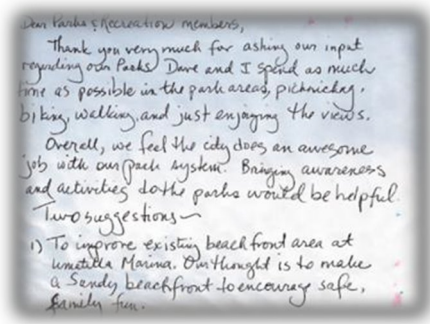 Dear Parks & Recreation members,
Thank you very much for asking our input
regarding our Parks. Dave and I spend as much
time as possible in the park areas, picnicking,
biking, walking, and just enjoying the views.
Overall, we feel the city does an awesome
job with our park system. Bringing awareness
and activities to the parks would be helpful.
Two suggestions ~
1) To improve existing beachfront area at
Umatilla Marina. Our thought is to make
a Sandy beachfront to encourage safe,
family fun.